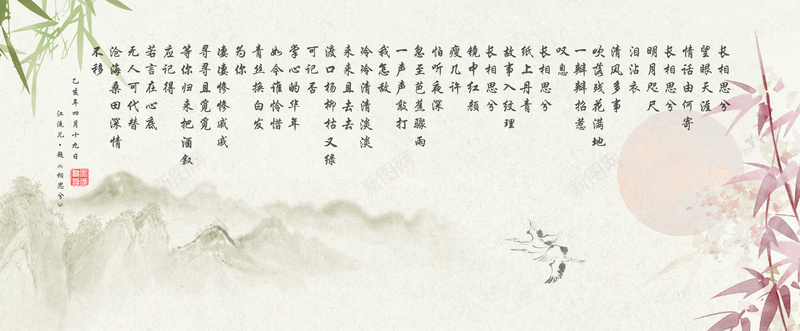 长相思兮
望眼天涯
情话由何寄
长相思兮
明月咫尺
泪沾衣
清风多事
吹落残花满地
一瓣瓣掐惹
叹息
长相思兮
纸上丹青
故事入纹理
长相思兮
镜中红颜
瘦几许
怕听夜深
忽至芭蕉骤雨
一声声敲打
我怎敌
冷冷清清淡淡
来来且去去
渡口杨柳枯又绿
掌心的华年
可记否
如今谁怜惜
青丝换白发
为你
凄凄惨惨戚戚
寻寻且觅觅
等你归来把酒叙
应记得
若言在心底
无人可代替
沧海桑田深情
不移
乙亥年四月十九日
江流儿·题《相思兮》